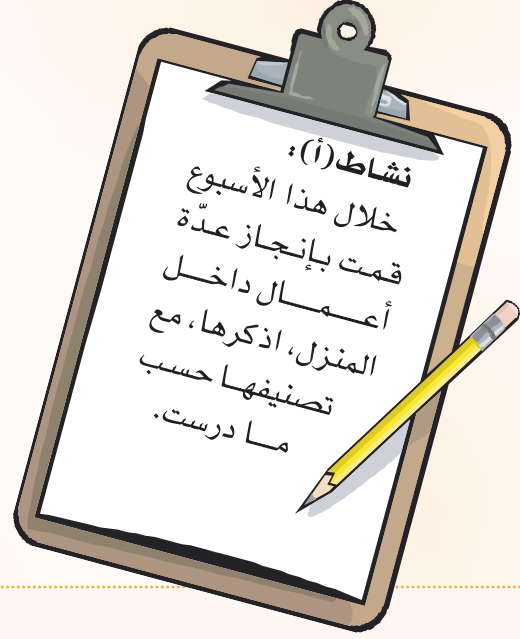 نشاط(أ):
خلال هذا الأسبوع
قمت بإنجاز عدّة
أعـــمـــال داخـــل
المنزل، اذكرها، مع
تصنيفهـا حسب
مـــا درست.